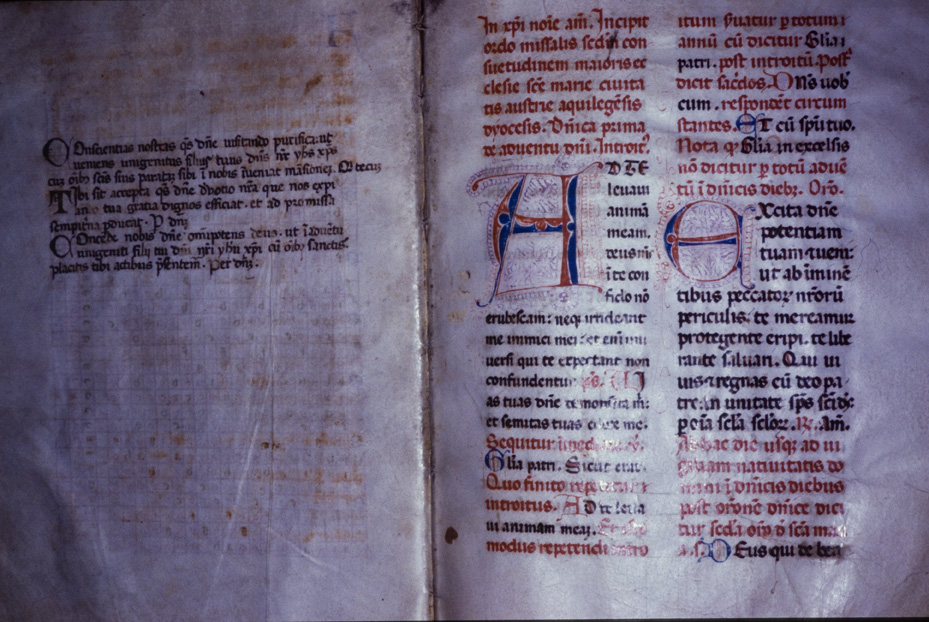 Onscientias nostras qs dne visitando purifica. ut
veniens unigenitus filius tuus dns nr yhs xps
cum oibz scis suis paratam sibi i nobis inveniat mansionem. Q tecu
Ibi sit accepta qs dne devotio nra que nos expi
ano tua gratia dignos efficiat. et ad promissa
sempitna pducat. P dnm
Oncede nobis dne omipotens deus. ut i adventu
unigeniti filii tui dni nri yhu xpi cu oibz sanctis
placitis tibi actibus psentem. Per dnm.
In xpi noie am. Incipit
ordo missalis sedm con
suetudinem maioris ec
clesie sce marie civita
tis austrie aquilegesis
dyocesis. Dnica prima
de adventu dni. Introit.
AD TE
levavi
animã
meam.
deus ms
i te con
fido nõ
erubescam: neqz irrideant
me inimici mei: et eni uni
versi qui te expectant non
confundentur ps. Vi
as tuas dne demonstra m:
et semitas tuas edoce me.
Sequitur
Glia patri. Sicut erat.
Quo finito repetatur
introitus. Ad te leva
vi animam meaz. Et
modus repetendi intro
itum suatur p totum
annũ cũ dicitur Glia
patri. post introitũ. Post
dicit sacdos. Dns vob
cum. respondet circum
stantes. Et cũ spu tuo.
Nota qz Glia in excelsis
nõ dicitur p totũ advẽ
tũ ĩ dnicis diebz. Orõ.
Excita dne
potentiam
tuam et veni:
ut ab iminẽ
tibus peccatorz nrorũ
periculis. te mereamur
protegente eripi. te libe
rante salvari. Qui vi
vis et regnas cũ deo pa
tre in unitate sps sci ds:
p oia scla sclorz. R. Am.
Ab hac die usqz ad vi
giliam nativitatis do
mini ĩ dnicis diebus
post oronẽ dnice dici
tur secda oro d sca ma
ria. Deus qui de bea